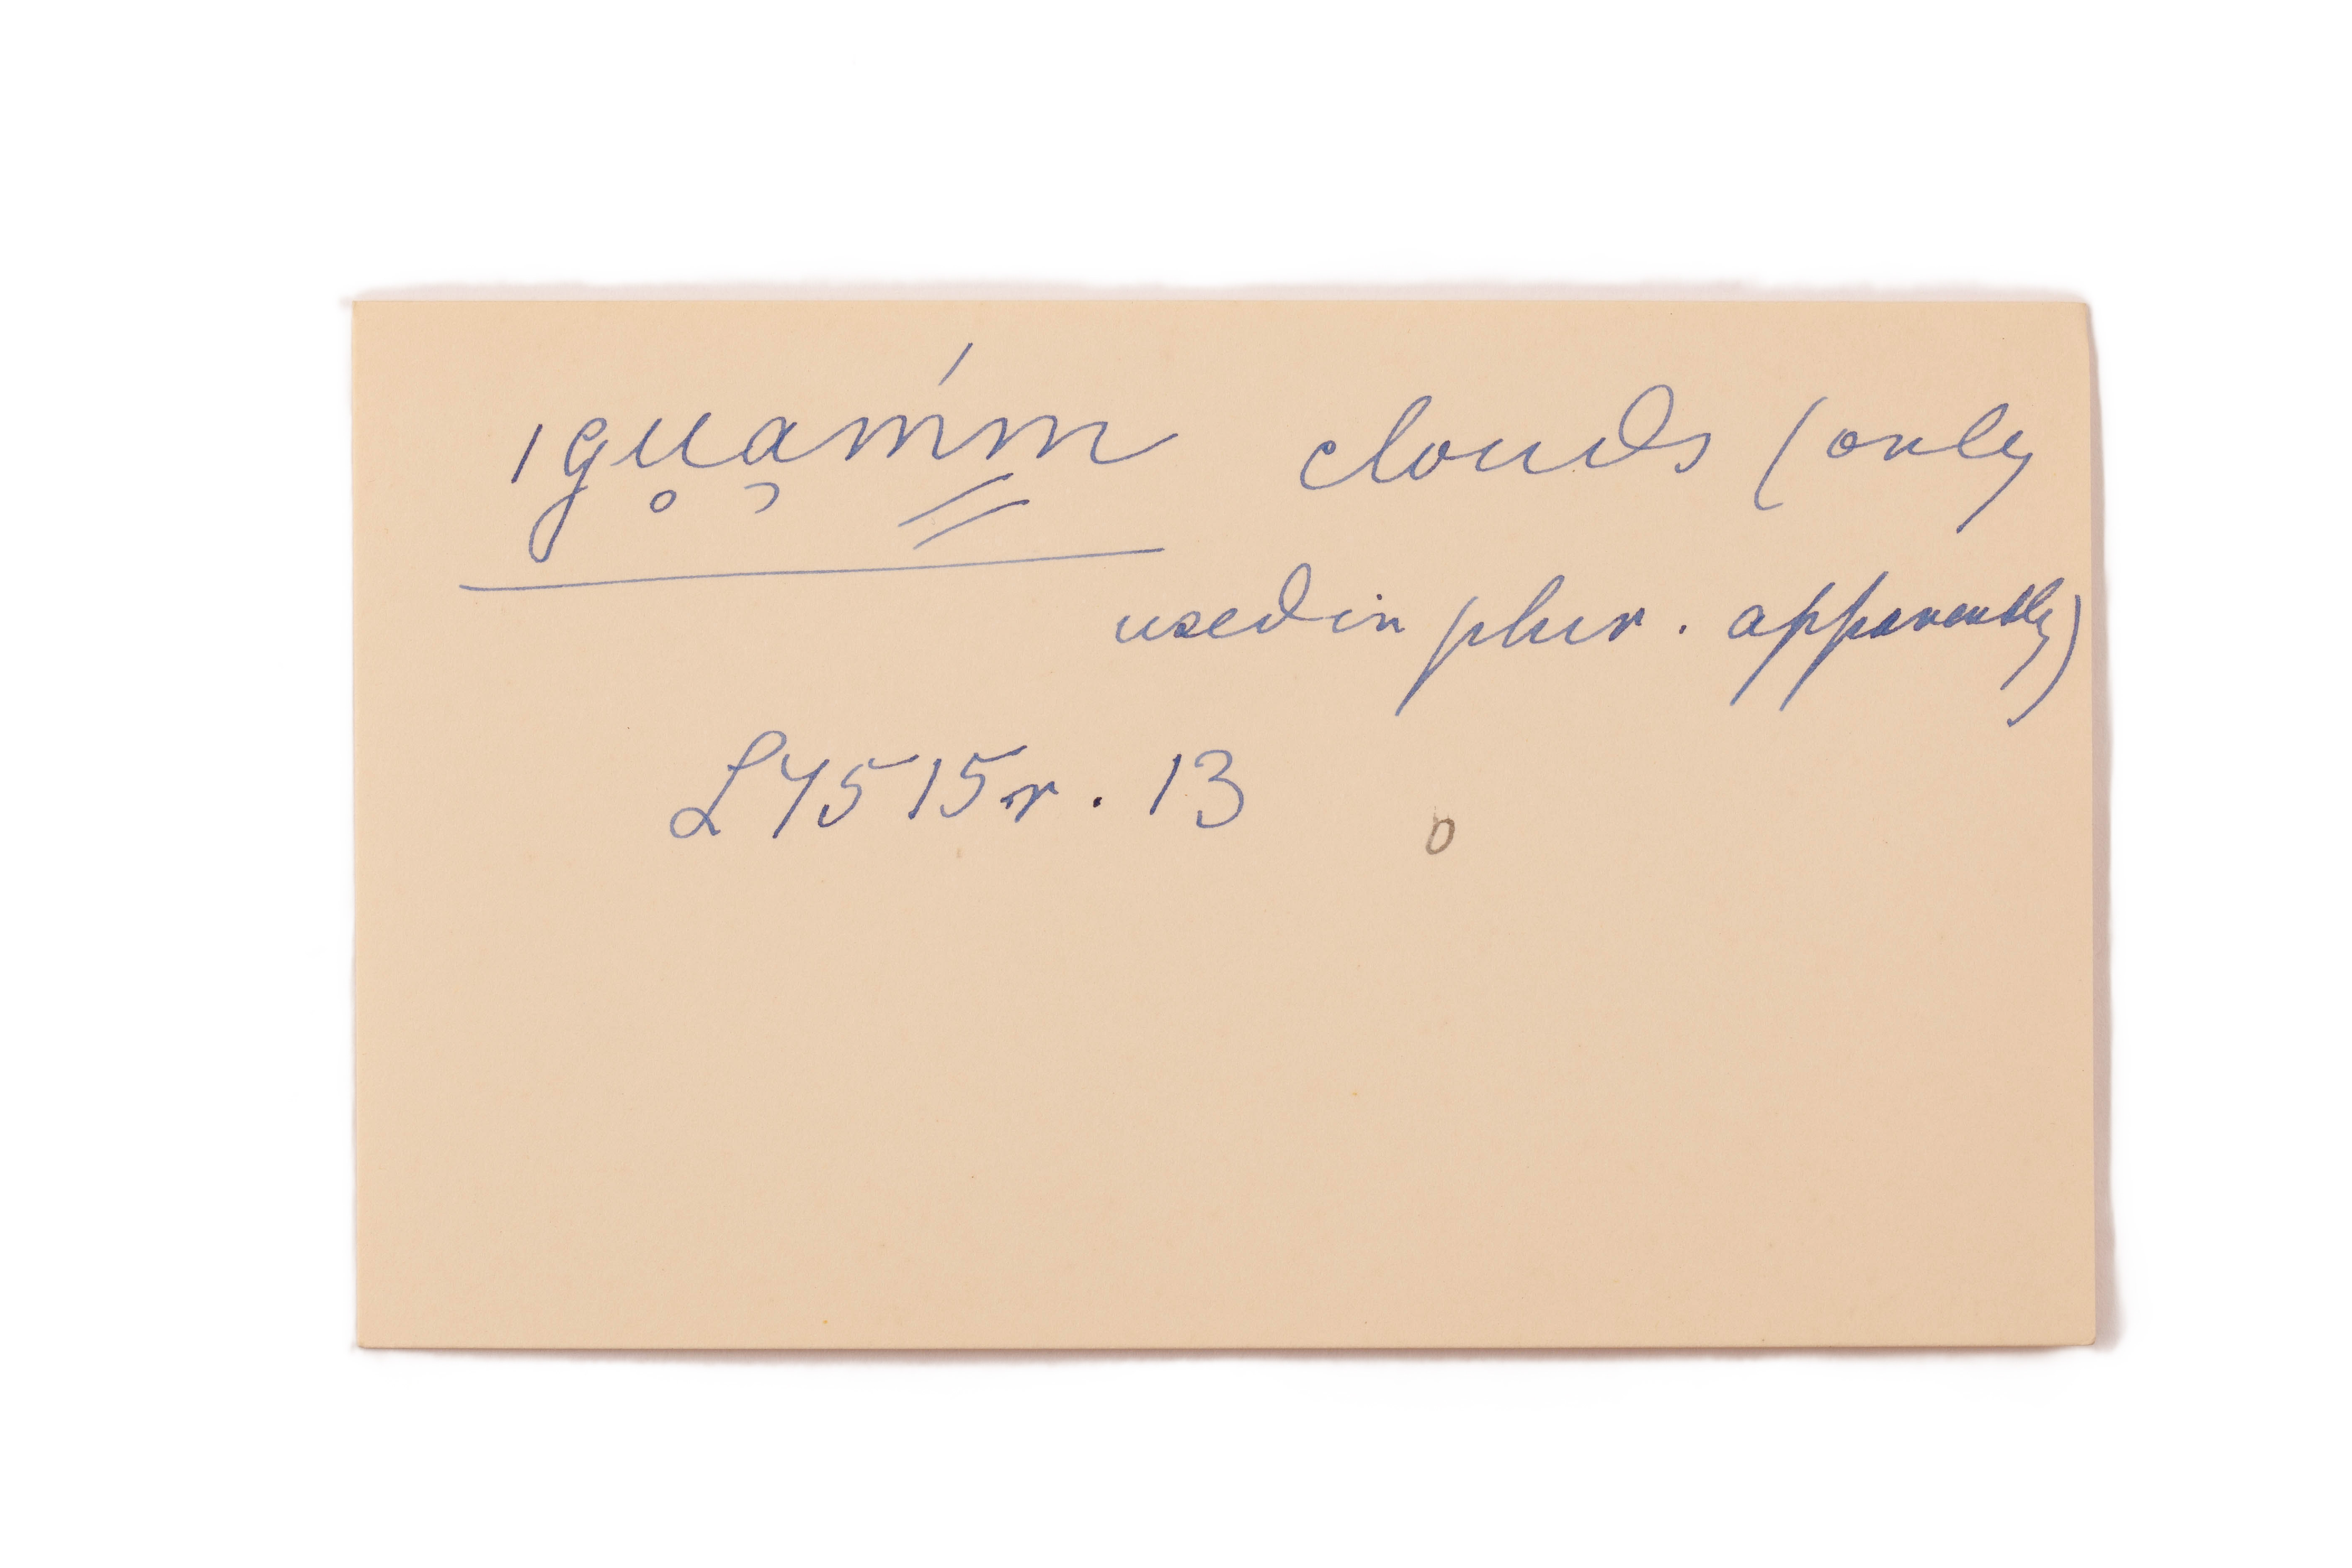 |gu̥a̦m'm̳ clouds (only
used in plur. apparently)
L7515r. 13
o